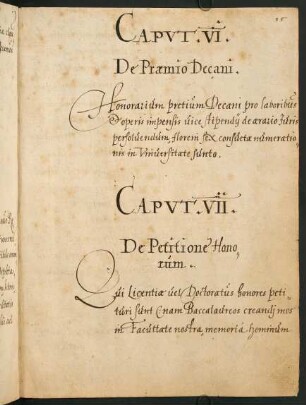 CAPVT.VI.
De Præmio Decani.
Honorarium pretium Decani pro laboribus
& operis impensis vice stipendij de ærario
persoluendum, floreni sex, consueta numeratio-
nis in Vniuersitate sunto.
CAPVT.VII.
De Petitione Hono,
rum.
Qui Licentiæ vel Doctoratus honores peti
turi sunt (nam Baccalaureos creandj mos
in Facultate nostra memoriâ hominum